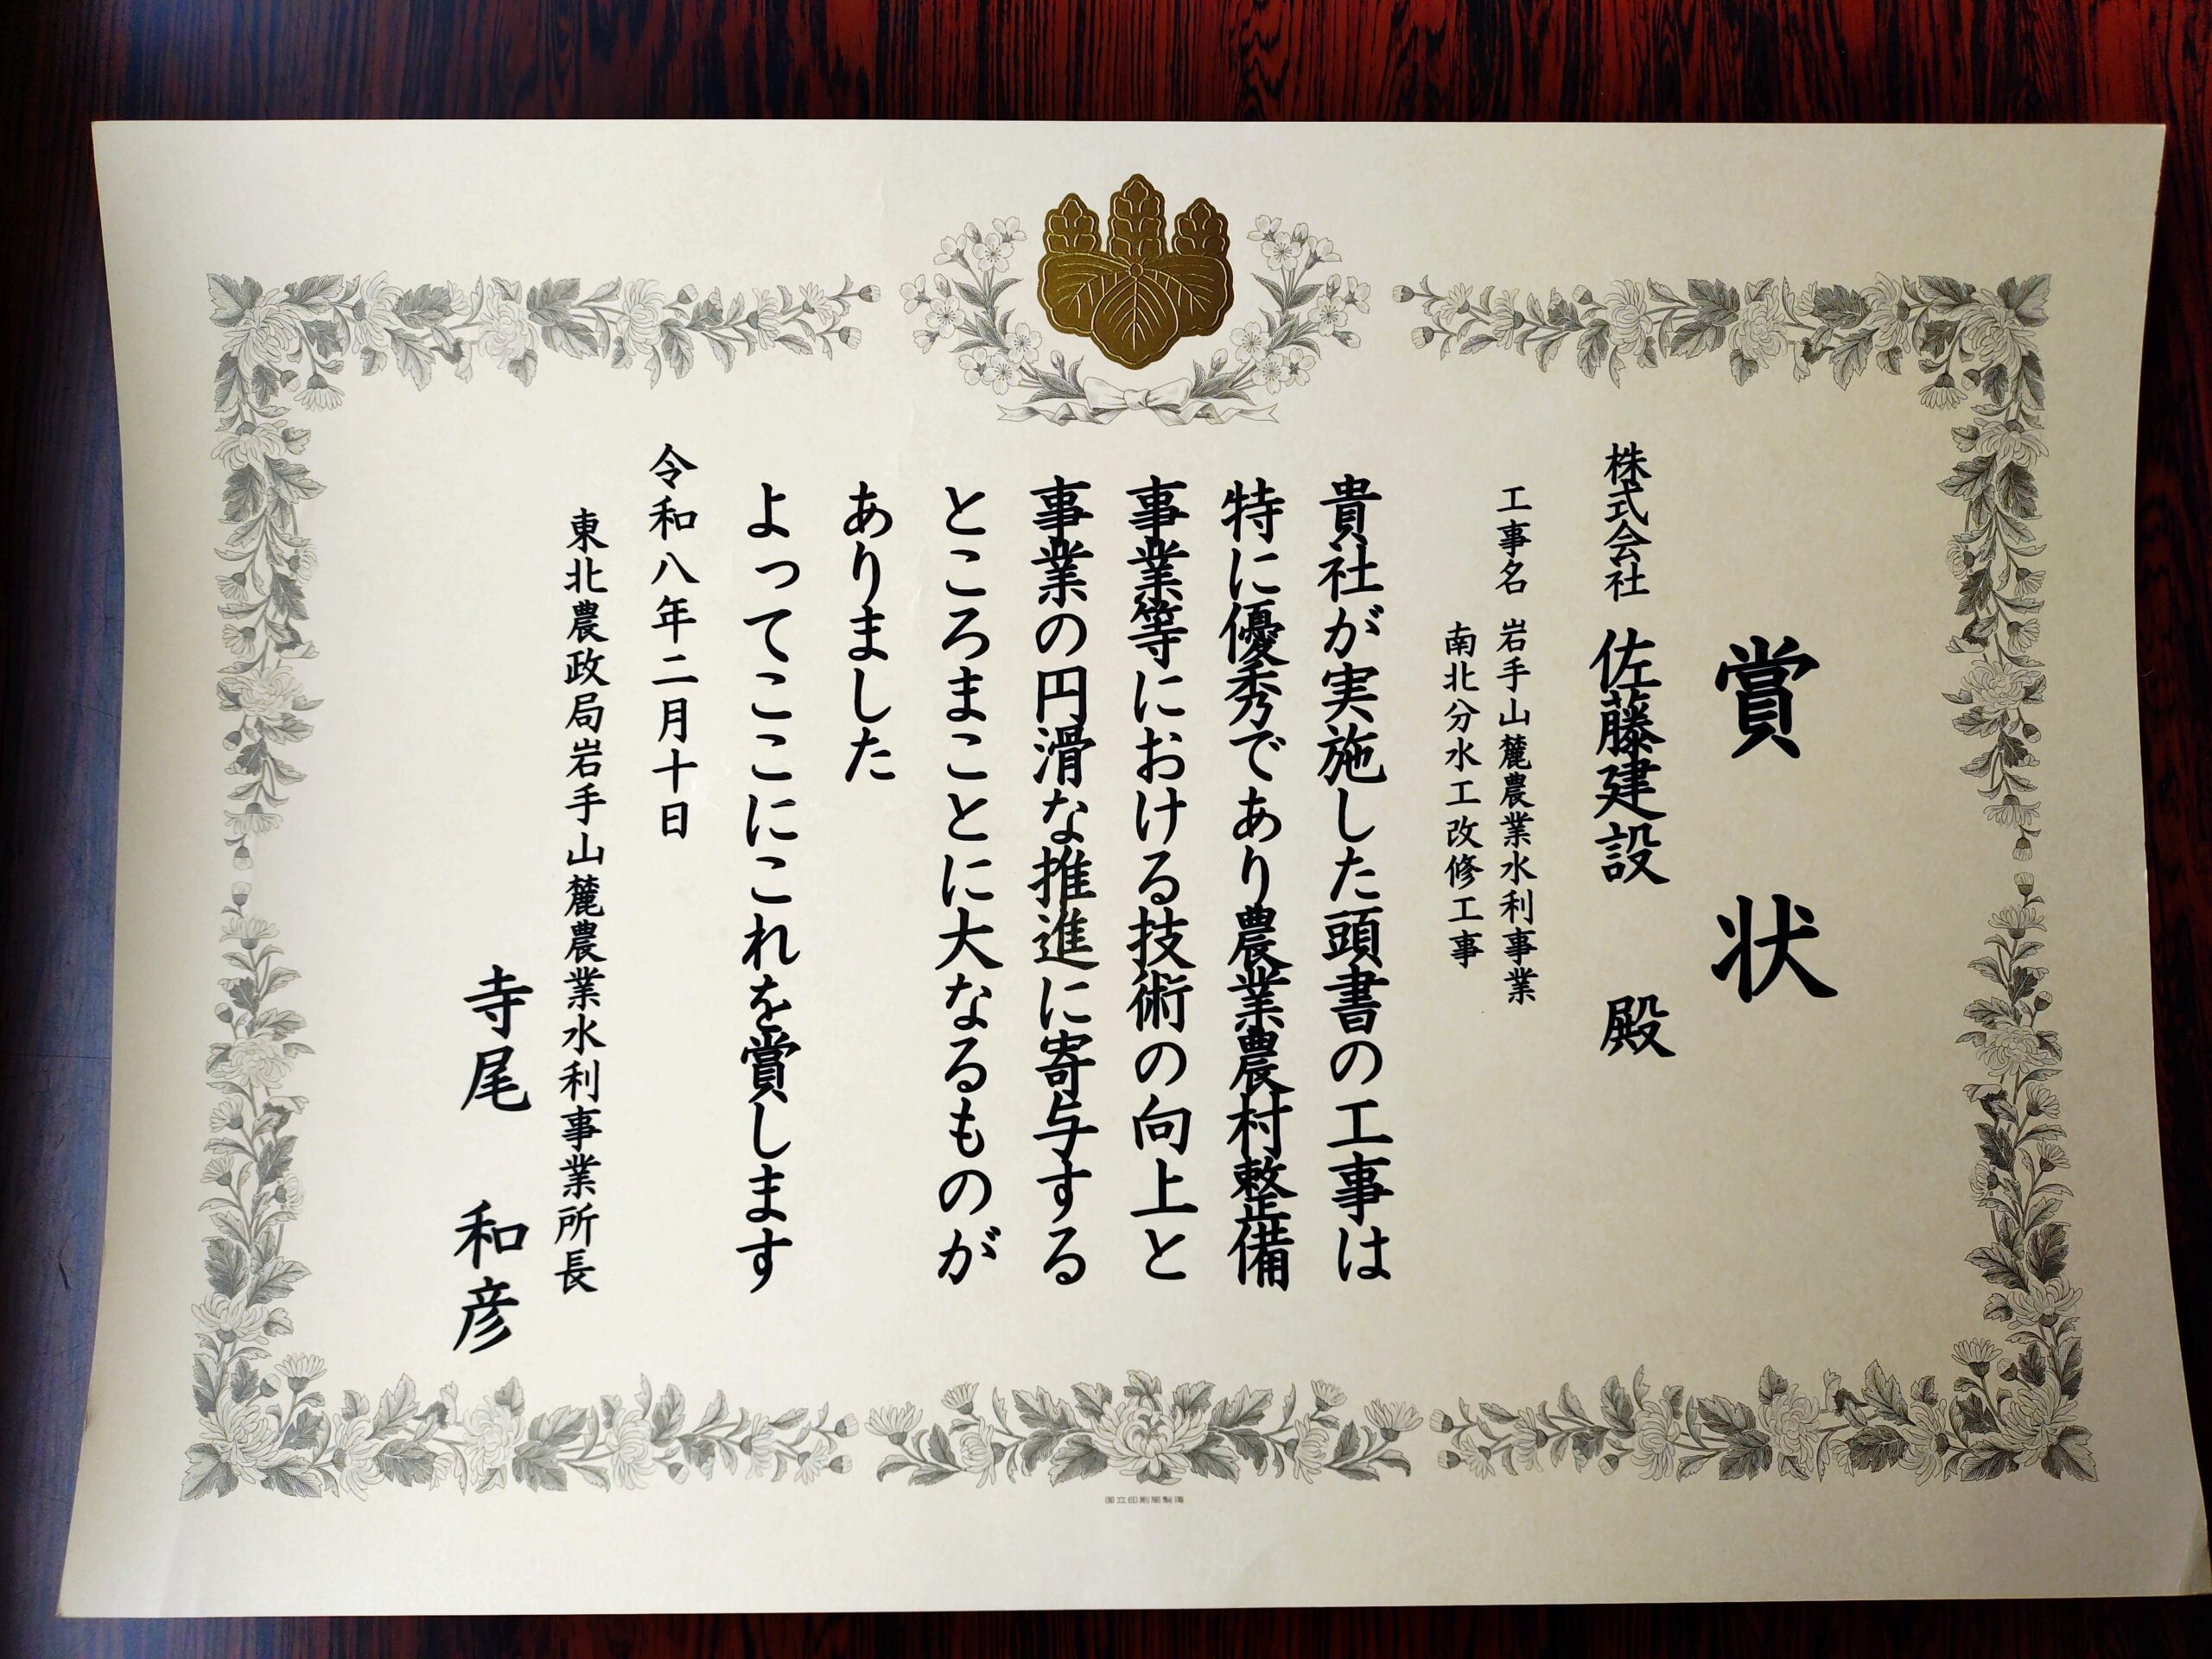 賞状
株式会社 佐藤建設 殿
工事名 岩手山麓農業水利事業
南北分水工改修工事
貴社が実施した頭書の工事は
特に優秀であり農業農村整備
事業等における技術の向上と
事業の円滑な推進に寄与する
ところまことに大なるものが
ありました
よってここにこれを賞します
令和八年二月十日
東北農政局岩手山麓農業水利事業所長
寺尾 和彦
国立印刷局製造